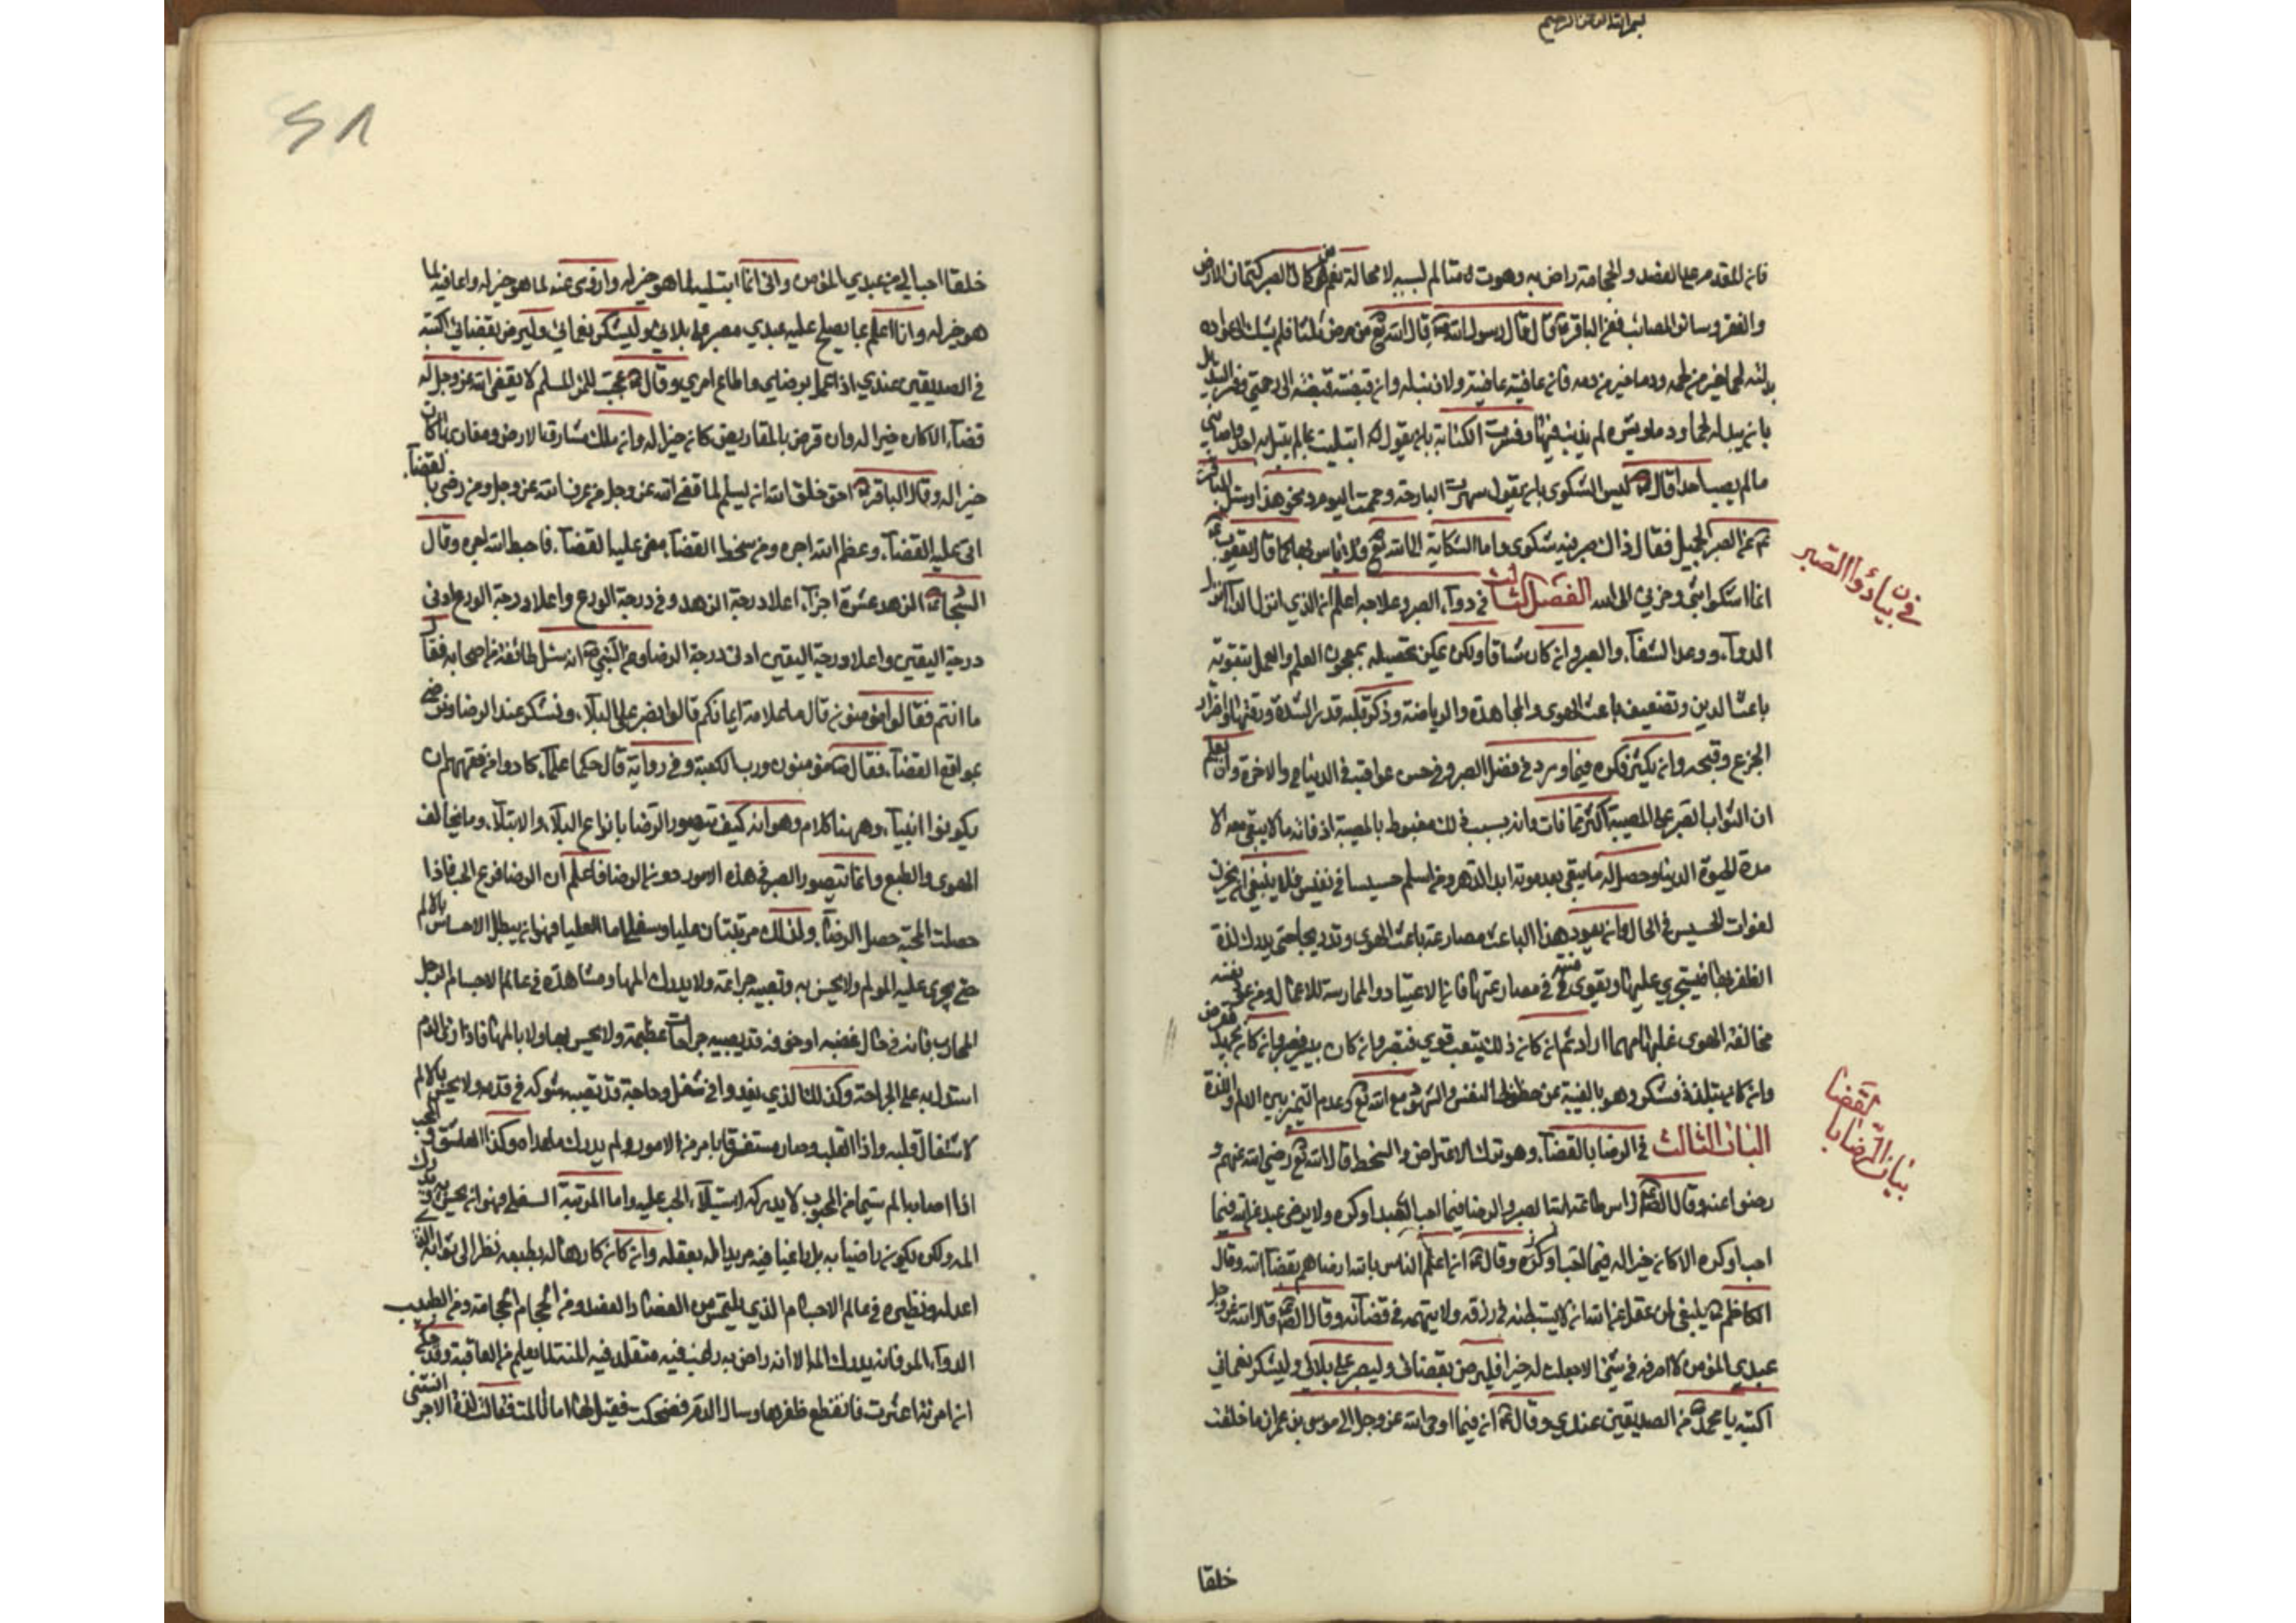 بسم الله الرحمن الرحيم
فان المقدم على الفصد والحجامة راض به وهو متالم لسببه لا محالة نعم من كمال الصبر كتمان المرض
والفقر وسائر المصائب فعن الباقر ع قال قال رسول الله ص قال الله تع من مرض ثلثا فلم يشك الى عواده
بدلته لحما خير من لحمه ودما خير من دمه فان عافيته عافيته ولا ذنب له وان قبضته قبضته الى رحمتي وفسر التبديل
بان يبدله لحما ودما وبشرة لم يذنب فيها وفسرت الشكاية بان يقول ابتليت بما لم يبتل به احد واصابني
ما لم يصب احدا قال وليس الشكوى بان يقول سهرت البارحة وحممت اليوم ونحو هذا وسئل الباقر
ع عن الصبر الجميل فقال ذاك صبر ليس فيه شكوى واما الشكاية الى الله تع فلا باس بها كما قال يعقوب ع
انما اشكو بثي وحزني الى الله الفصل الثالث في دوآء الصبر وعلاجه اعلم ان الذي انزل الدآء انزل
في بيان دوآء الصبر
الدوآء ووعد الشفآء والصبر وان كان شاقا ولكن يمكن تحصيله بمعجون العلم والعمل بتقوية
باعث الدين وتضعيف باعث الهوى والمجاهدة والرياضة وذكر قلة قدر الشدة ووقتها واضرار
الجزع وقبحه وان يكثر فكره فيما ورد في فضل الصبر وفي حسن عواقبه في الدنيا والاخرة وان يعلم
ان الثواب الصبر على المصيبة اكثر مما فات وانه بسبب ذلك مغبوط بالمصيبة اذ فاته ما لا يبقى معه الا
مدة الحيوة الدنيا وحصل له ما يبقى بعد موته ابد الدهر ومن اسلم خسيسا في نفيس فلا ينبغي ان يحزن
لفوات الخسيس في الحال وان يعود هذا الباعث مصارعة باعث الهوى تدريجا حتى يدرك لذة
الظفر بها فيستجري عليها ويقوى منته في مصارعتها فان الاعتياد والممارسة للاعمال ومن عود نفسه
مخالفة الهوى غلبها مهما اراد ثم ان كان ذلك بتعب قوي فتصبر وان كان بيسير فصبر وان كان
وان كان يتلذذ فشكر وهو بالغيبة عن حظوظ النفس والشهود مع الله تع وعدم التميز بين الالم واللذة
الباب الثالث في الرضا بالقضآء وهو ترك الاعتراض والسخط قال الله تع رضي الله عنهم و
بيان الرضا بالقضا
رضوا عنه وقال الص راس طاعة الله الصبر والرضا فيما احب العبد او كره ولا يرضى عبد عن الله فيما
احب او كره الا كان خيرا له فيما احب او كره وقال ع ان اعلم الناس بالله ارضاهم بقضآء الله وقال
الكاظم ع ينبغي لمن عقل عن الله ان لا يستبطئه في رزقه ولا يتهمه في قضآئه وقال الص قال الله عز وجل
عبدي المؤمن لا اصرفه في شئ الا جعلت له خيرا فليرض بقضائي وليصبر على بلائي وليشكر نعمائي
اكتبه يا محمد من الصديقين عندي وقال ع ان فيما اوحى الله عز وجل الى موسى بن عمران ما خلقت
خلقا
خلقا احب الي من عبدي المؤمن واني انما ابتليه لما هو خير له وازوى عنه لما هو خير له واعافيه لما
هو خير له وانا اعلم بما يصلح عليه عبدي فليصبر على بلائي وليشكر نعمائي وليرض بقضائي اكتبه
في الصديقين عندي اذا عمل برضاي واطاع امري وقال ع عجبت للمرء المسلم لا يقضي الله عز وجل له
قضآء الا كان خيرا له وان قرض بالمقاريض كان خيرا له وان ملك مشارق الارض ومغاربها كان
خيرا له وقال الباقر ع احق خلق الله ان يسلم لما قضى الله عز وجل من عرف الله عز وجل ومن رضي بالقضآء
اتى عليه القضآء وعظم الله اجره ومن سخط القضآء مضى عليه القضآء فاحبط الله اجره وقال
السجاد ع الزهد عشرة اجزآء اعلا درجة الزهد وفي درجة الورع واعلا درجة الورع ادنى
درجة اليقين واعلا درجة اليقين ادنى درجة الرضا وعن النبي ص انه سئل طائفة من اصحابه فقال
ما انتم فقالوا مؤمنون قال ما علامة ايمانكم قالوا نصبر على البلآء ونشكر عند الرضا ونرضى
بمواقع القضآء فقال ص مؤمنون ورب الكعبة وفي رواية قال حكمآء علمآء كادوا من فقههم ان
يكونوا انبيآء وههنا كلام وهو انه كيف يتصور الرضا بانواع البلآء والابتلآء وما يخالف
الهوى والطبع وانما يتصور الصبر في هذه الامور دون الرضا فاعلم ان الرضا فرع الحب فاذا
حصلت المحبة حصل الرضا ولذلك مرتبتان عليا وسفلى اما العليا فهو ان يبطل الاحساس بالالم
حتى يجري عليه المولم ولا يحس به وتصيبه جراحة ولا يدرك المها ومشاهدة في عالم الاجسام الرجل
المحارب فانه في حال غضبه او خوفه قد يصيبه جراحات عظيمة ولا يحس بها ولا بالمها فاذا راى الدم
استدل به على الجراحة وكذلك الذي يغدو في شغل وحاجة قد تصيبه شوكة في قدمه ولا يحس بالالم
لاشتغال قلبه واذا القلب صار مستغرقا بامر من الامور لم يدرك ما عداه وكذا العاشق
اذا اصابه الم سيما من المحبوب لا يدركه لاستيلآء الحب عليه واما المرتبة السفلى فهو ان يحس به ويدرك
المه ولكن يكون راضيا به بل راغبا فيه مريدا له بعقله وان كان كارها له بطبعه نظرا الى ثوابه الذي
اعد له ونظيره في عالم الاجسام الذي يلتمس من الفصاد الفصد ومن الحجام الحجامة ومن الطبيب
الدوآء المر فانه يدرك الم الا انه راض به راغب فيه متقلد فيه المنة لما يعلم من العاقبة وقد حكي
ان امرئة اعثرت فانقطع ظفرها وسال الدم فضحكت فقيل لها اما تالمت فقالت لذة الاجر انستني